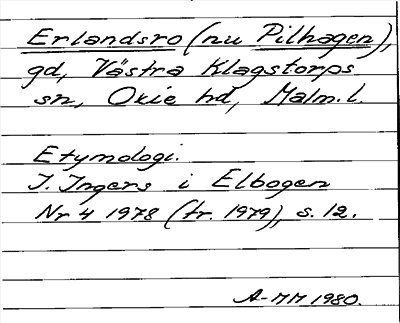 Erlandsro (nu Pilhagen),
gd, Västra Klagstorps
sn, Oxie hd, Malm. l.
Etymologi.
I. Ingers i Elbogen
Nr 4 1978 (tr. 1979), s. 12.
A-MM 1980.